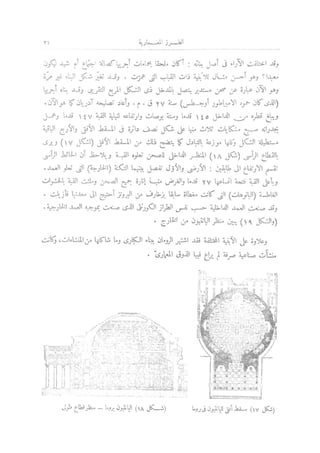 الطرز المعمارية
٣١
وقد اختلفت الآراء في أصل بنائه : أكان ملحقا بحمامات أجريبا كصالة اجتماع أم شيد ليكون
معبدا؟ وهو أحسن مثال للأبنية ذات القباب التي عمرت . وقد تغير شكل البناء غير مرة
وهو الآن عبارة عن صحن مستدير يتصل بالمدخل ذي الشكل المربع التقريبي وقد بناه أجريبا
(الذي كان حمو الامبراطور أوجسطس) سنة ٢٧ ق . م . وأعاد تصليحه أدريان كما هو الآن
ويبلغ قطره من الداخل ١٤٥ قدما وستة بوصات وارتفاعه لنهاية القبة ١٤٧ قدما وعمل
بجدرانه سبع مشكايات ثلاث منها على شكل نصف دائرة في المسقط الأفقي والأربع الباقية
مستطيلة الشكل وكلها موزعة بالتبادل كما يتضح ذلك من المسقط الأفقي (الشكل ١٧) ويرى
بالقطاع الرأسي (شكل ١٨) المنظر الداخلي للصحن تعلوه القبة ويلاحظ أن الحائط الرأسي
تقسم الارتفاع الى طابقين : الأرضي والأول تفصل بينهما التكنة (الخارجة) التي تعلو العمد
وبأعلى القبة فتحة اتساعها ٢٧ قدما والغرض منها إنارة جميع الصحن وملئت القبة بالحشوات
الغاطسة (البانوهات) التي كانت مغطاة سابقا بزخارف من البرونز
وقد صنعت العمد الداخلية حسب نفس الطراز الكورنثي الذي صنعت بموجبه العمد الخارجية
(والشكل ١٩) يبين منظر البانثيون من الخارج .
وعلاوة على الأبنية المختلفة فقد اشتهر الرومان ببناء الكباري وما شاكلها من المنشآت، وكانت
منشآت صناعية لم يراع فيها الذوق المعماري .
(شكل ١٧) مسقط أفقي البانثيون في روما
(شكل ١٨) البانثيون بروما — منظر قطاع طولي